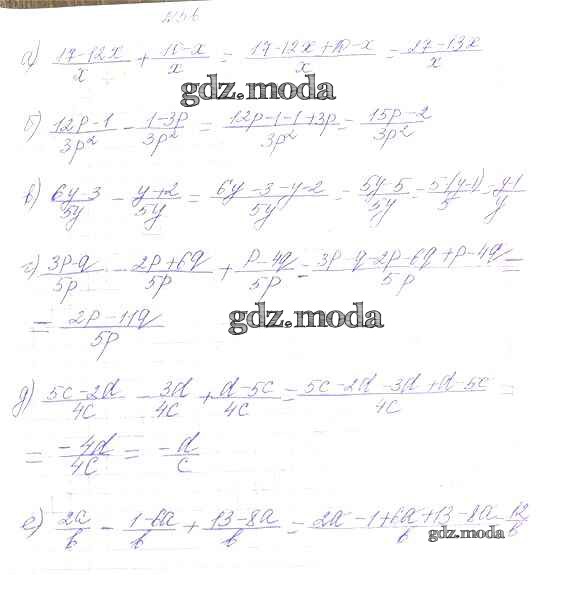 №56
а) (17-12x)/x + (10-x)/x = (17-12x+10-x)/x = (27-13x)/x
gdz.moda
б) (12p-1)/3p² - (1-3p)/3p² = (12p-1-1+3p)/3p² = (15p-2)/3p²
в) (6y-3)/5y - (y+2)/5y = (6y-3-y-2)/5y = (5y-5)/5y = 5(y-1)/5 = (y-1)/y
г) (3p-q)/5p - (2p+6q)/5p + (p-4q)/5p = (3p-q-2p-6q+p-4q)/5p =
= (2p-11q)/5p
gdz.moda
д) (5c-2d)/4c - 3d/4c + (d-5c)/4c = (5c-2d-3d+d-5c)/4c =
= -4d/4c = -d/c
е) 2a/b - (1-6a)/b + (13-8a)/b = (2a-1+6a+13-8a)/b = 12/b
gdz.moda